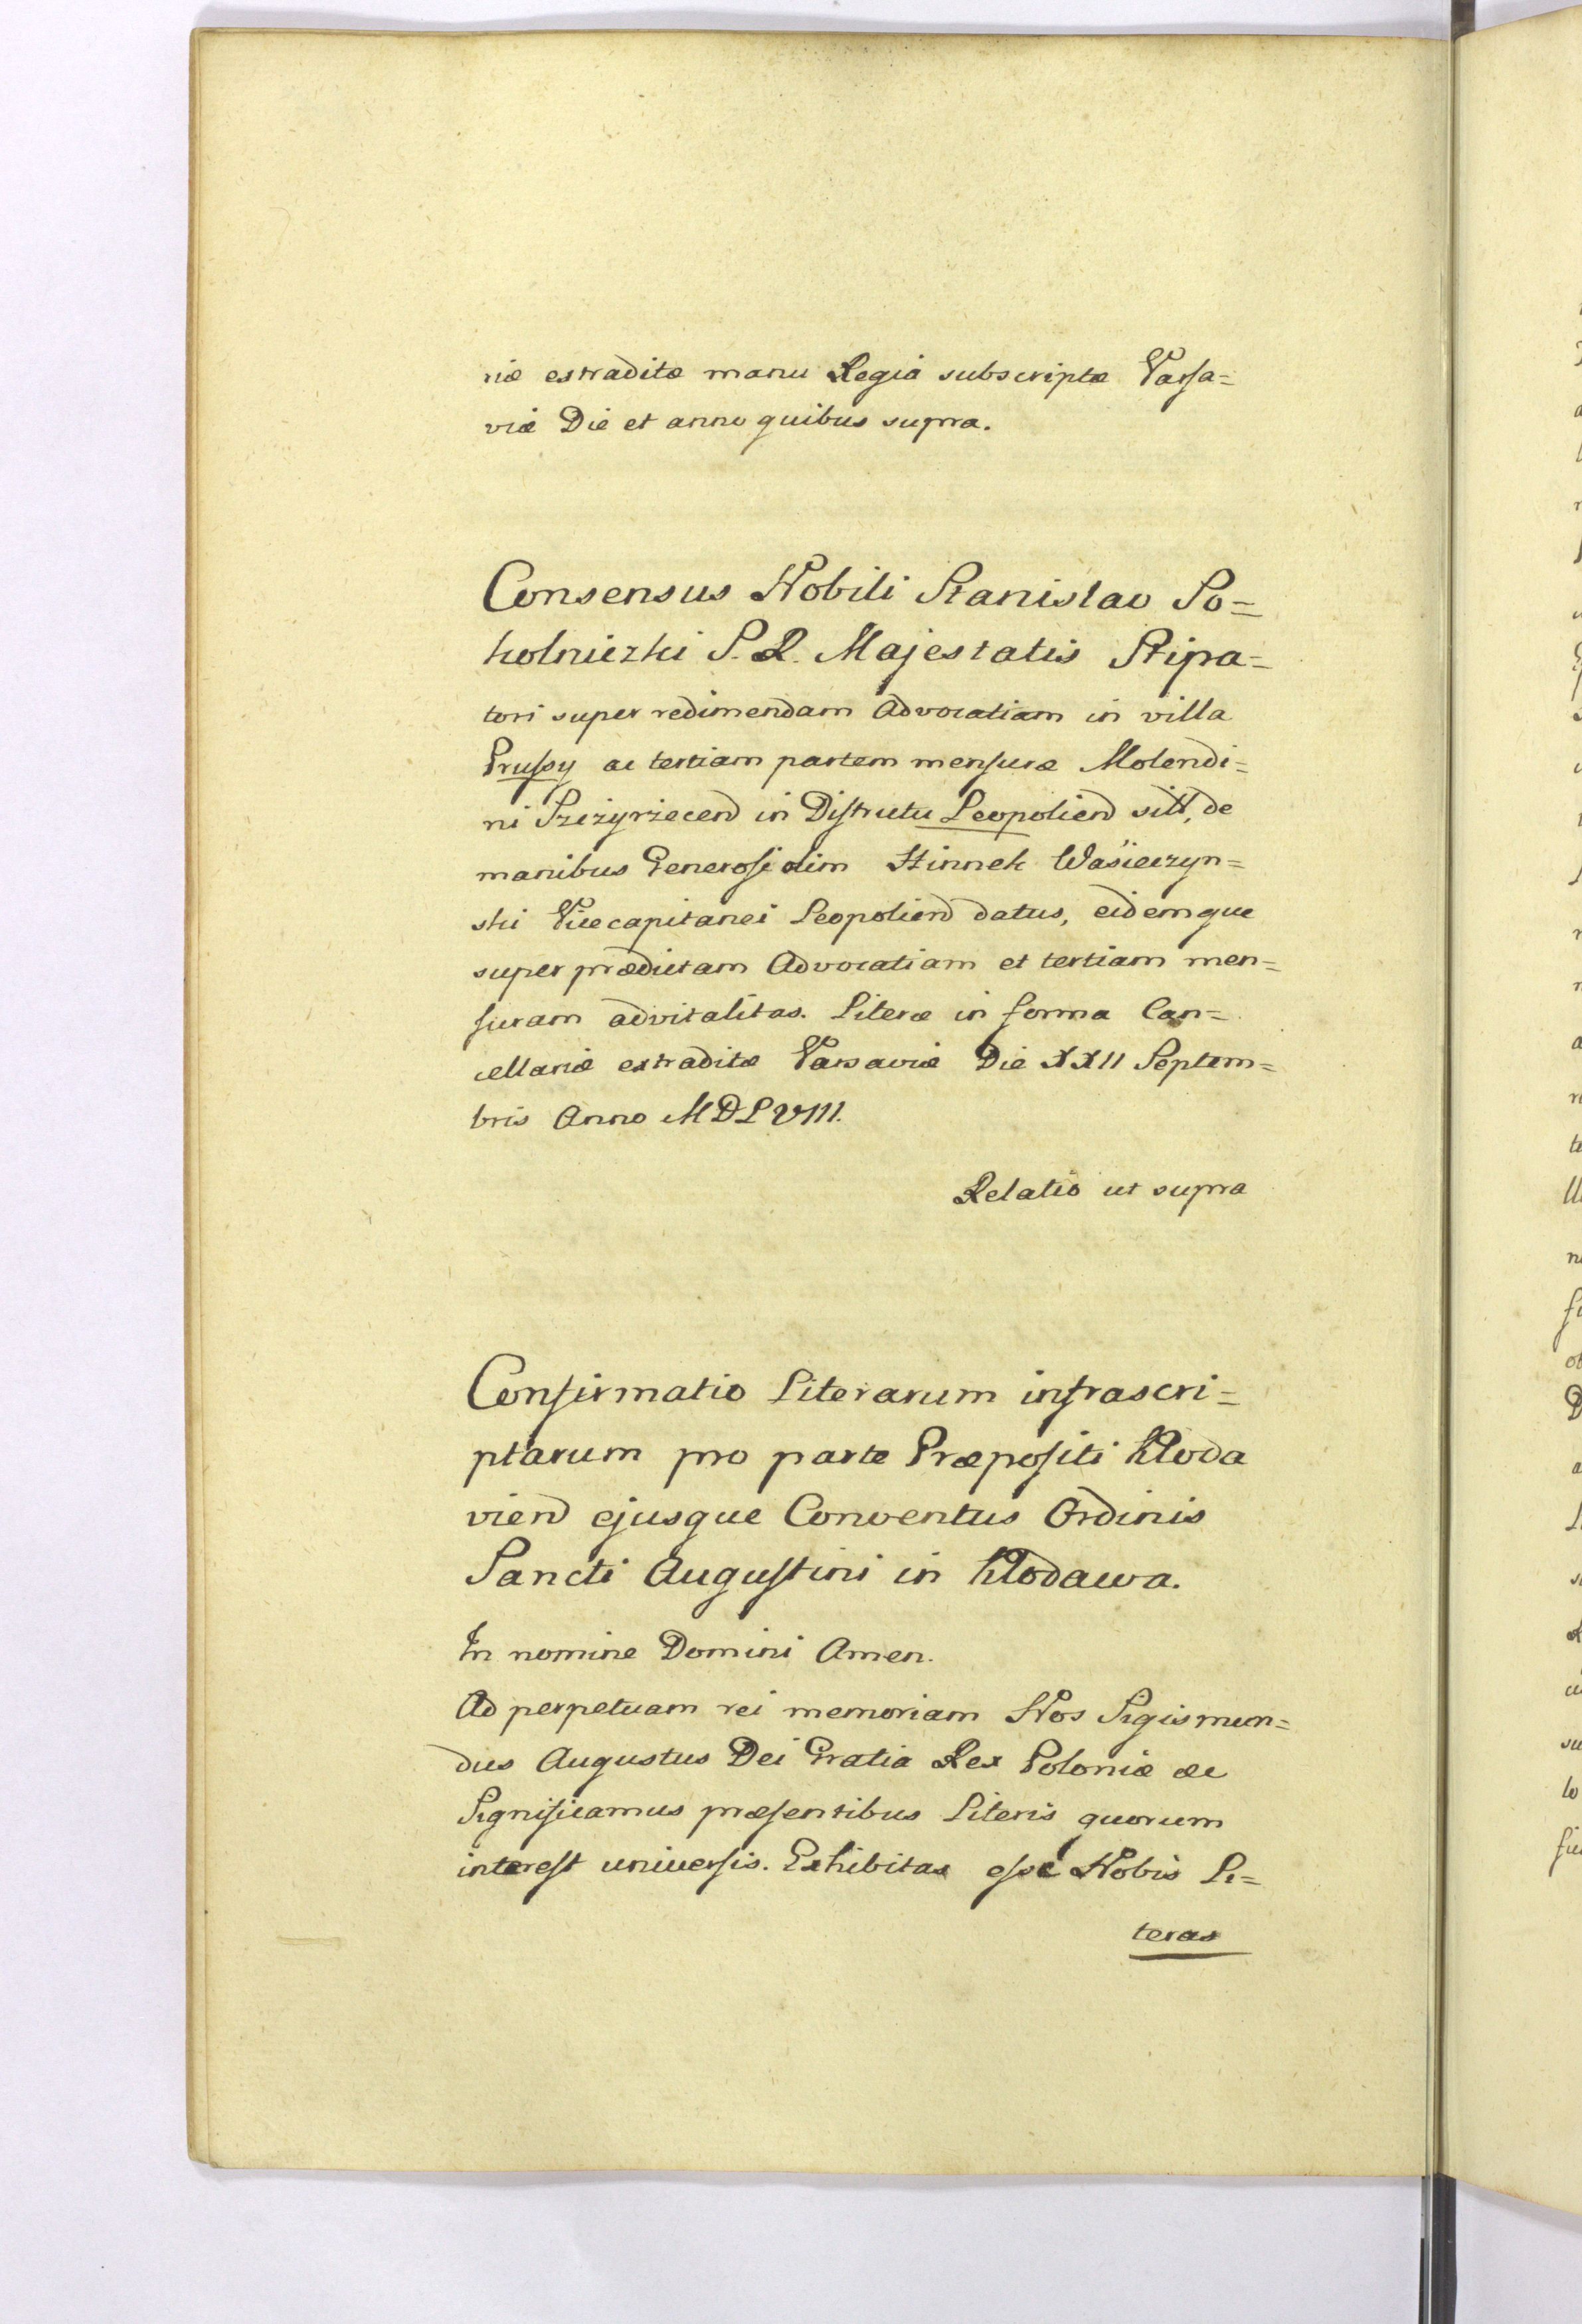 riæ extraditæ manu Regia subscriptæ Varsa=
viæ Die et anno quibus supra.
Consensus Nobili Stanislao So=
kolnizki S. R. Majestatis Stipa=
tori super redimendam Advocatiam in villa
Prussy ac tertiam partem mensuræ Molendi=
ni in Districtu Leopolien sitt, de
manibus Generosi olim Hinnek Wasieczyn=
ski Vicecapitanei Leopolien datus, eidemque
super prædictam Advocatiam et tertiam men=
suram advitalitas. Literæ in forma Can=
cellariæ extraditæ Varsaviæ Die XXII Septem=
bris Anno MDLVIII.
Relatio ut supra
Confirmatio Literarum infrascri=
ptarum pro parte Præpositi Kloda
vien ejusque Conventus Ordinis
Sancti Augustini in Klodawa.
In nomine Domini Amen.
Ad perpetuam rei memoriam Nos Sigismun=
dus Augustus Dei Gratia Rex Poloniæ &c
Significamus præsentibus Literis quorum
interest universis. Exhibitas esse Nobis Li=
teras